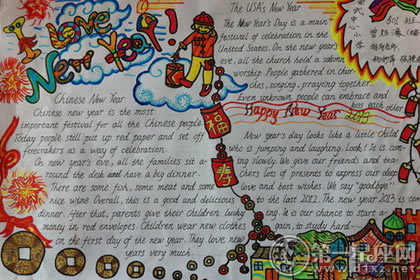 I Love New Year!
The USA's New Year
The New Year's Day is a main
festival of celebration in the
United States. On the new year's
eve, all the church hold a solemn
worship. People gathered in chur-
ches, singing, praying together.
Even unknown people can embrace and
kiss each other
Happy New Year 2013
Chinese New Year
Chinese new year is the most
important festival for all the Chinese people.
Today people still put up red paper and set off
firecrakers as a way of celebration.
On new year's eve, all the families sit a-
round the desk and have a big dinner.
There are some fish, some meat and some
nice wine. Overall, this is a good and delicious
dinner. After that, parents give their children lucky
money in red envelopes. Children wear new clothes
on the first day of the new year. They love new
years very much.
New year's day looks like a little child
who is jumping and laughing. Look! It is co-
ming slowly. We give our friends and tea-
chers lots of presents to express our deep
love and best wishes. We say "goodbye"
to the last 2012. The new year 2013 is com-
ing. It is our chance to start a-
gain, to study hard
福
春
第一星座网